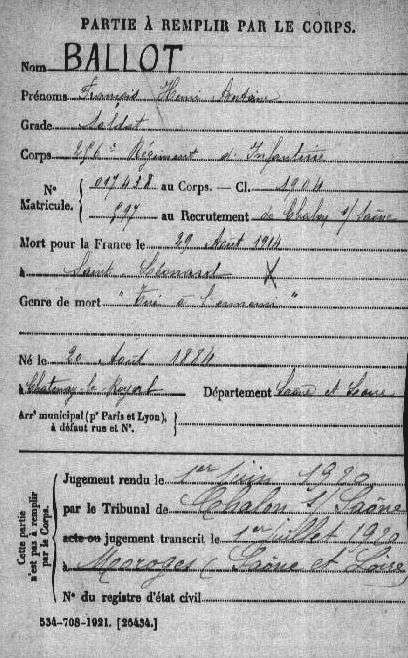 PARTIE À REMPLIR PAR LE CORPS.
Nom BALLOT
Prénoms François Henri Antoine
Grade Soldat
Corps 256e Régiment d'Infanterie
Nº 017438 au Corps. — Cl. 1904
Matricule. 597 au Recrutement de Chalon s/ Saône
Mort pour la France le 29 Août 1914
à Saint Léonard
Genre de mort "Tué à l'ennemi"
Né le 20 Août 1884
à Chatenoy-le-Royal Département Saône et Loire
Arrt municipal (pr Paris et Lyon),
à défaut rue et Nº.
Cette partie
n'est pas à remplir
par le Corps.
Jugement rendu le 1er Juin 1920
par le Tribunal de Chalon s/ Saône
acte ou jugement transcrit le 1er Juillet 1920
à Moroges (Saône et Loire
Nº du registre d'état civil
534-708-1921. [26434.]